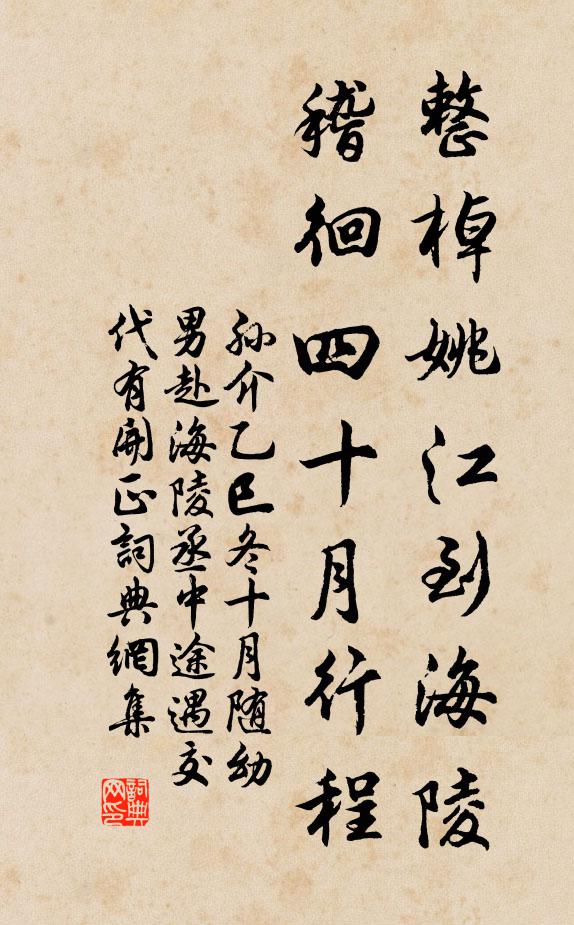 整棹姚江到海陵
稽徊四十月行程
孙介乙巳冬十月随幼
男赴海陵丞中途遇交
代有開正詞典網集
詞典網印